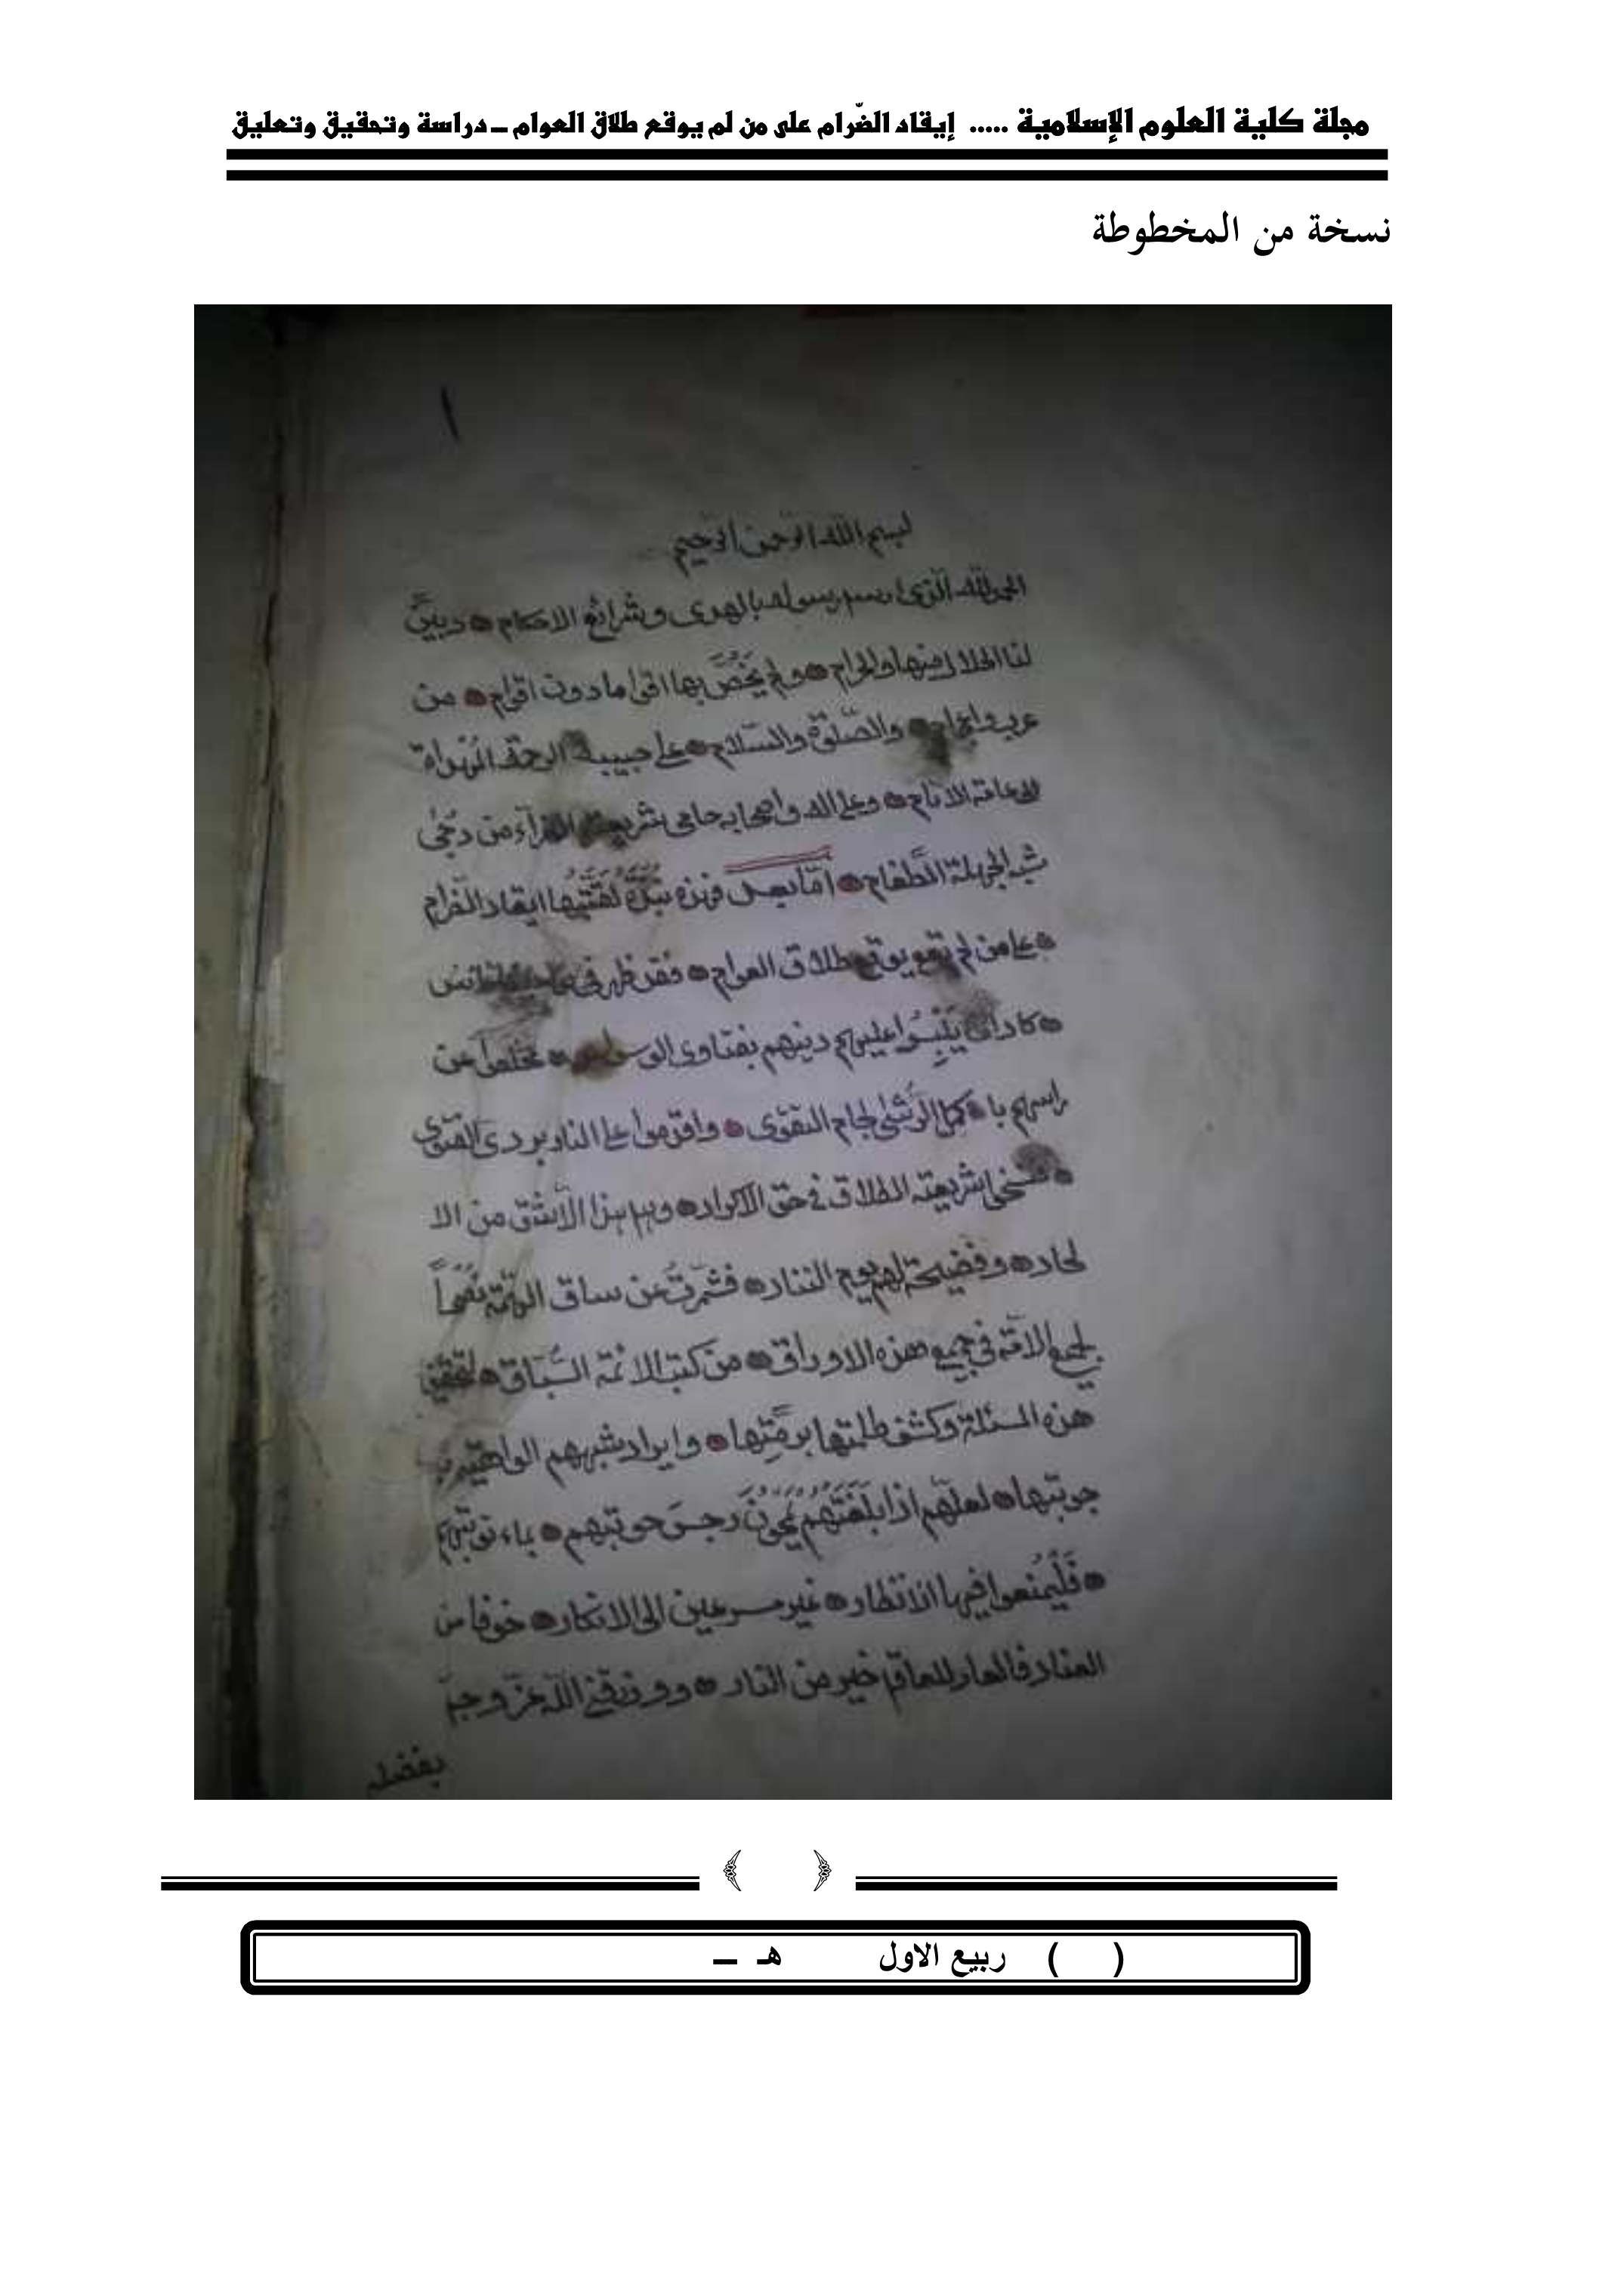 مجلة كلية العلوم الإسلامية ..... إيقاد الضّرام على من لم يوقع طلاق العوام ــ دراسة وتحقيق وتعليق
نسخة من المخطوطة
١
بسم الله الرحمن الرحيم
الحمد لله الذي ارسل رسوله بالهدى وشرائع الاحكام وبيّن
لنا الحلال منها والحرام ولم يَخُصَّ بها اقواما دون اقوام من
عرب واعجام والصّلوة والسّلام على حبيبه الرحمة المهداة
الى عامة الانام وعلى اله واصحابه حامى شريعته الغرآء من دجى
شبه الجهلة الطَّغام امّا بعد فهذه نبذة لقّبتها ايقاد الضّرام
على من لم يوقع طلاق العوام فقد ظهر في
كادوا ان يَلْبِسُوا عليهم دينهم بفتاوى الوسواس عن
راسهم با لجام التقوى واقدموا على النار الفتوى
شريعة الطلاق في حق الاكراد وهم بهذا الاشق من الا
لحاد وفضيحة لهم يوم التناد فشمّرتُ عن ساق الهمّة نُصْحاً
لجميع الامّة في جميع هذه الاوراق من كتب الائمة السُّبّاق لتحقيق
هذه المسئلة وكشف ظلمتها برمّتها وايراد شبههم الواهية
لعلّهم اذا بلَغَتْهُم يمحُونَ رجسَ حوبتهم بماء توبتهم
فليمنعوا فيها الانظار غير مسرعين الى الانكار خوفا من
العناد فالعار للعاقل خير من النار ووفقنى الله عزّ وجلّ
بفضله
( ) ربيع الاول هـ ــ